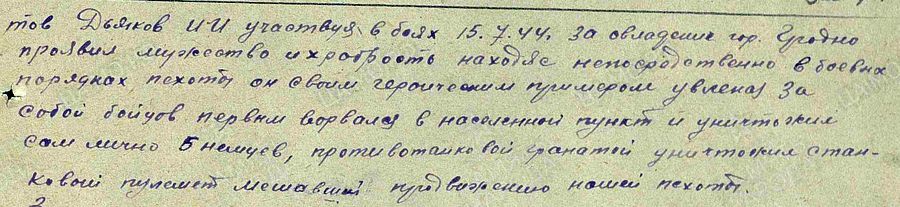 тов Дьяков И И участвуя в боях 15.7.44. За овладение гор. Гродно
проявил мужество и храбрость находяс непосредственно в боевых
порядках пехоты он своим героическим примером увлекая за
собой бойцов первым ворвался в населенной пункт и уничтожил
сам лично 5 немцев, противотанковой гранатой уничтожил стан-
ковый пулемет мешавший продвижению нашей пехоты.